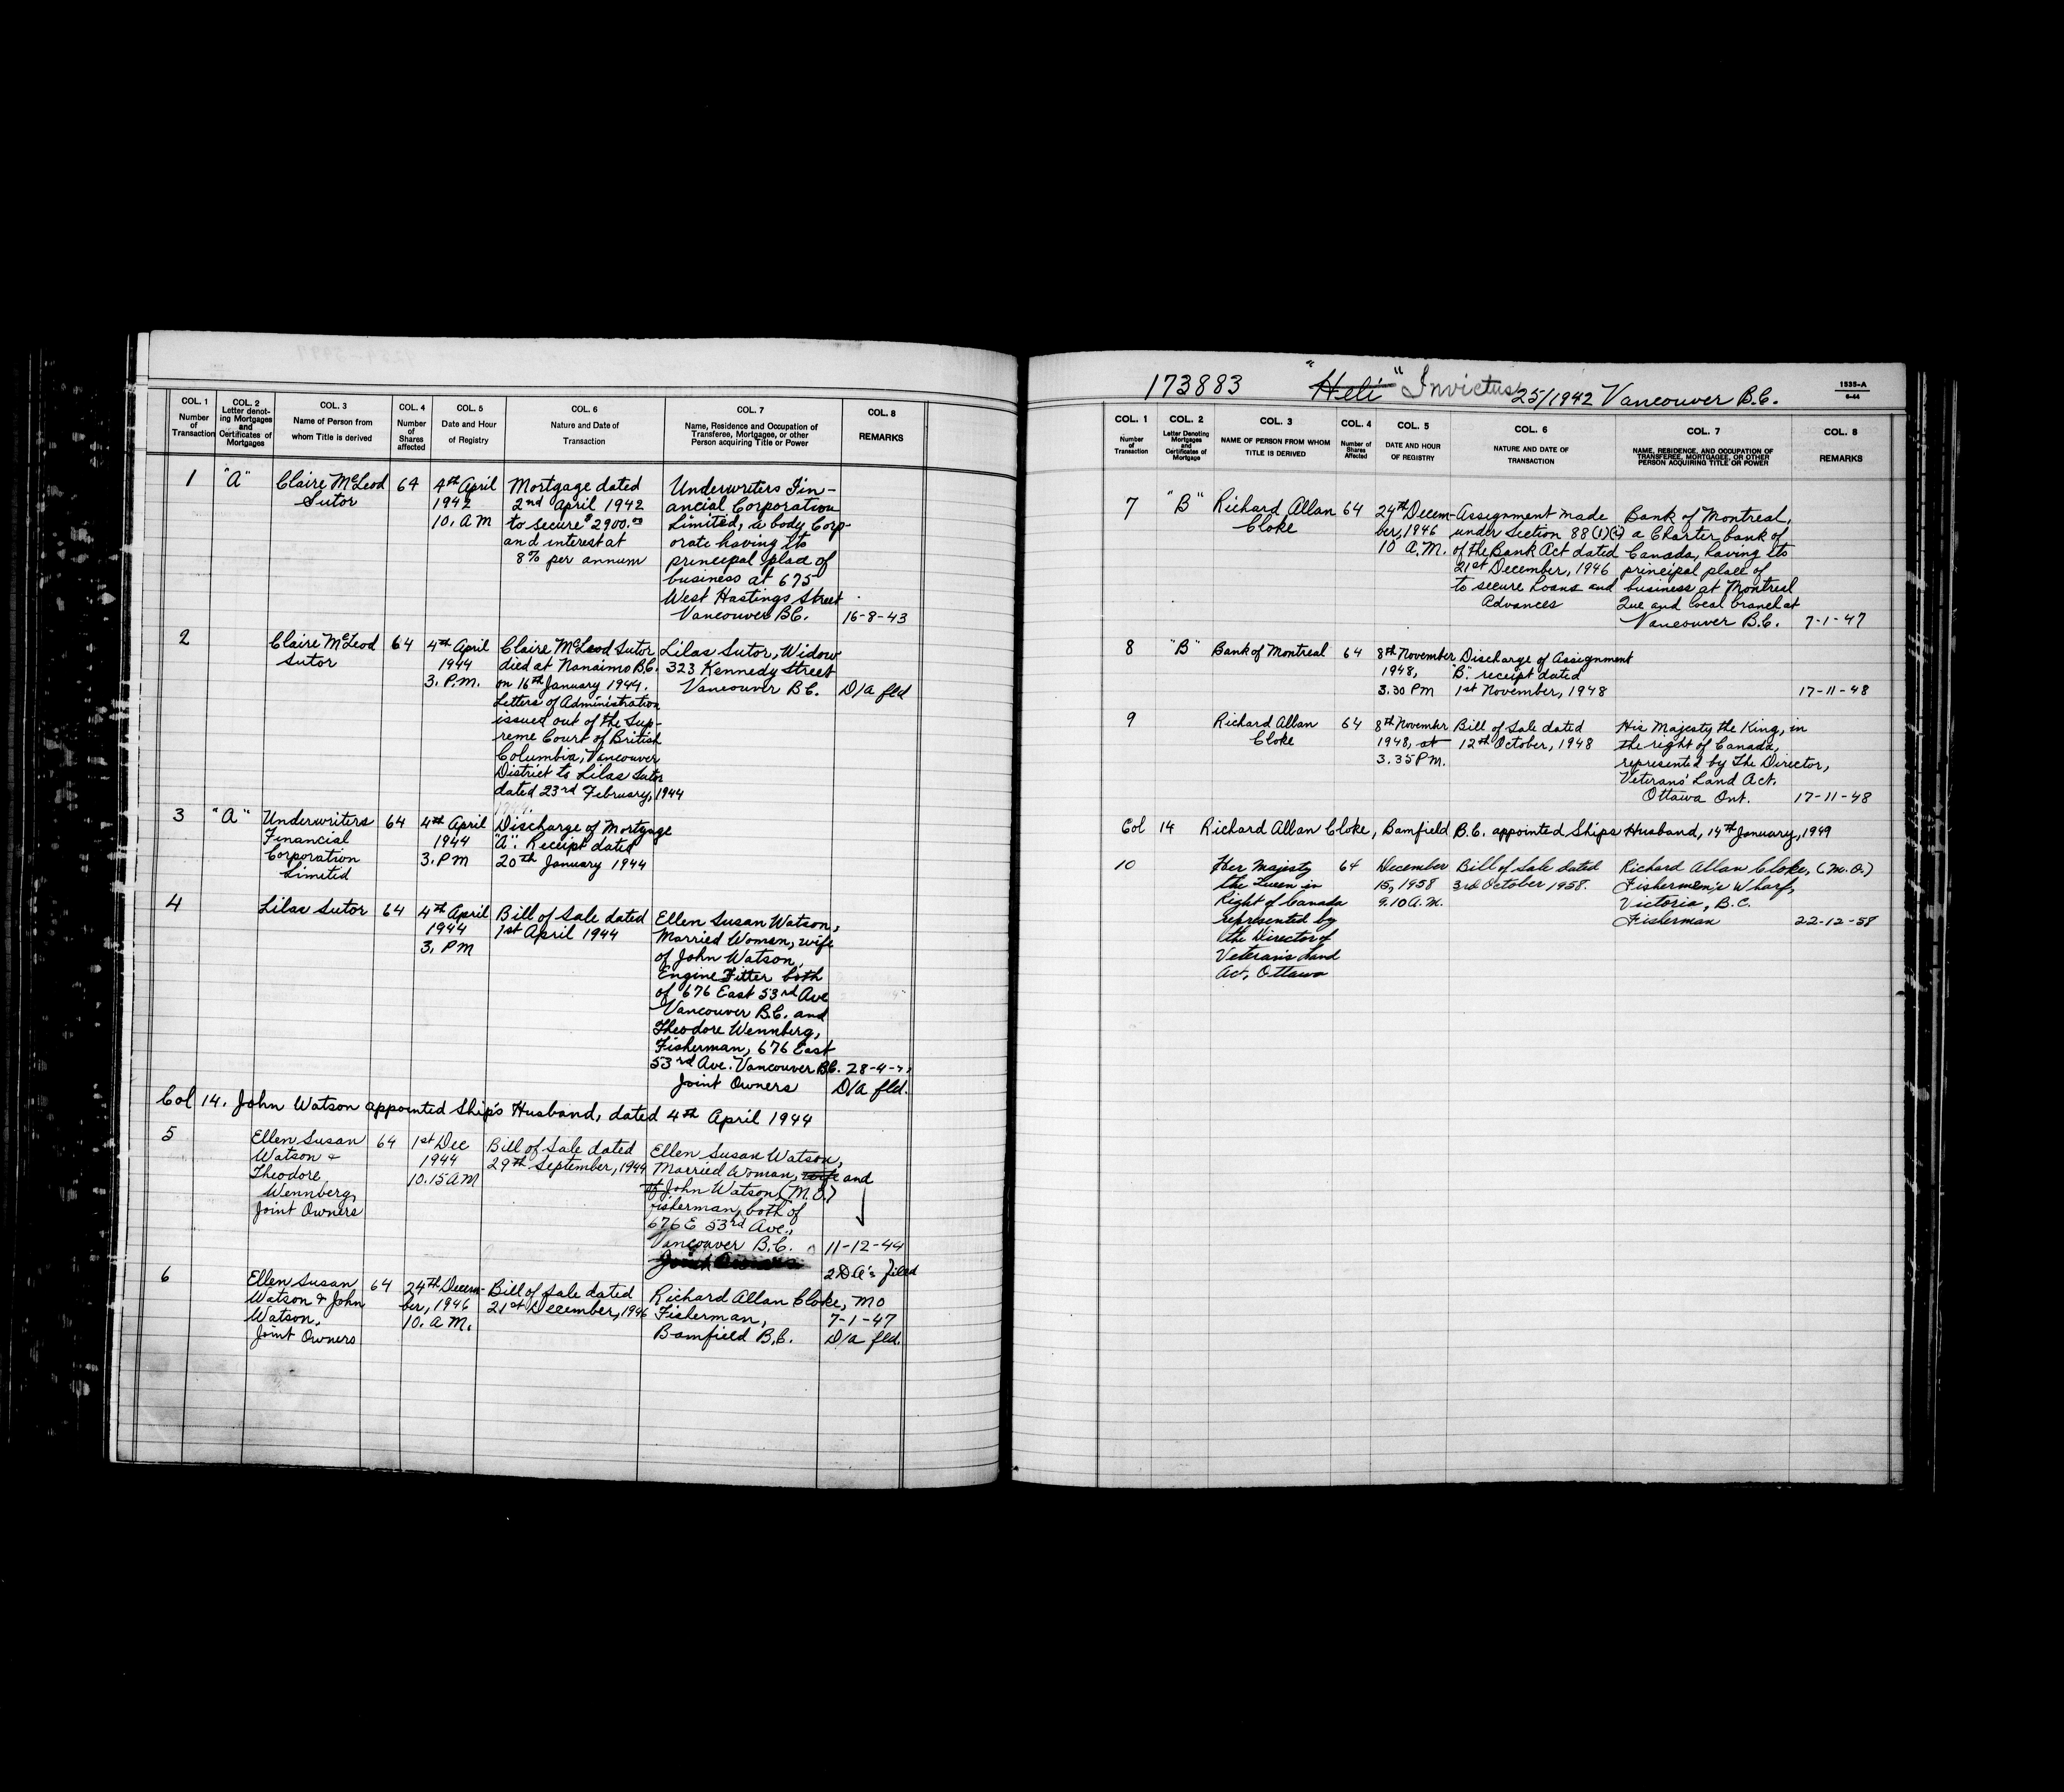 COL. 1 COL. 2 COL. 3 COL. 4 COL. 5 COL. 6 COL. 7 COL. 8
Number of Transaction
Letter denoting Mortgages and Certificates of Mortgages
Name of Person from whom Title is derived
Number of Shares affected
Date and Hour of Registry
Nature and Date of Transaction
Name, Residence and Occupation of Transferee, Mortgagee, or other Person acquiring Title or Power
REMARKS
1 "A" Claire McLeod 64 4th April Mortgage dated Underwriters Fin-
Sutor 1942 2nd April 1942 ancial Corporation
10. A M to secure $2900.00 Limited, a body Corp-
and interest at orate having its
8% per annum principal place of
business at 675
West Hastings Street
Vancouver B.C. 16-8-43
2 Claire McLeod 64 4th April Claire McLeod Sutor Lilas Sutor, Widow
Sutor 1944 died at Nanaimo B.C. 323 Kennedy Street
3. P.M. on 16th January 1944. Vancouver B.C. D/a fld
Letters of Administration
issued out of the Sup-
reme Court of British
Columbia, Vancouver
District to Lilas Sutor
dated 23rd February, 1944
3 "A" Underwriters 64 4th April Discharge of Mortgage
Financial 1944 "A". Receipt dated
Corporation 3. PM 20th January 1944
Limited
4 Lilas Sutor 64 4th April Bill of Sale dated Ellen Susan Watson,
1944 1st April 1944 Married Woman, wife
3. PM of John Watson,
Engine Fitter both
of 676 East 53rd Ave
Vancouver B.C. and
Theodore Wennberg,
Fisherman, 676 East
53rd Ave. Vancouver B.C. 28-4-
Joint Owners D/a fld.
Col 14. John Watson appointed Ship's Husband, dated 4th April 1944
5 Ellen Susan 64 1st Dec Bill of Sale dated Ellen Susan Watson,
Watson & 1944 29th September, 1944 Married Woman, wife and
Theodore 10.15 AM of John Watson (M.O.)
Wennberg, fisherman, both of
Joint Owners 676 E 53rd Ave.,
Vancouver B.C. 11-12-44
Joint Owners 2 DA's filed
6 Ellen Susan 64 24th Decem- Bill of Sale dated Richard Allan Cloke, MO
Watson & John ber, 1946 21st December, 1946 Fisherman,
Watson, 10. A M. Bamfield B.C. 7-1-47
Joint Owners D/a fld.
173883 "Heli" "Invictus" 25/1942 Vancouver B.C.
1535-A
6-44
COL. 1 COL. 2 COL. 3 COL. 4 COL. 5 COL. 6 COL. 7 COL. 8
Number of Transaction
Letter Denoting Mortgages and Certificates of Mortgage
NAME OF PERSON FROM WHOM TITLE IS DERIVED
Number of Shares Affected
DATE AND HOUR OF REGISTRY
NATURE AND DATE OF TRANSACTION
NAME, RESIDENCE, AND OCCUPATION OF TRANSFEREE, MORTGAGEE, OR OTHER PERSON ACQUIRING TITLE OR POWER
REMARKS
7 "B" Richard Allan 64 24th Decem- Assignment made Bank of Montreal,
Cloke ber, 1946 under Section 88(1) a Charter bank of
10 A.M. of the Bank Act dated Canada, having its
21st December, 1946 principal place of
to secure Loans and business at Montreal
Advances Que and local branch at
Vancouver B.C. 7-1-47
8 "B" Bank of Montreal 64 8th November Discharge of Assignment
1948, "B". receipt dated
3.30 PM 1st November, 1948 17-11-48
9 Richard Allan 64 8th November Bill of Sale dated His Majesty the King, in
Cloke 1948, at 12th October, 1948 the right of Canada,
3.35 PM. represented by The Director,
Veterans' Land Act.
Ottawa Ont. 17-11-48
Col 14 Richard Allan Cloke, Bamfield B.C. appointed Ships Husband, 14th January, 1949
10 Her Majesty 64 December Bill of Sale dated Richard Allan Cloke, (M.O.)
the Queen in 15, 1958 3rd October 1958. Fishermen's Wharf,
Right of Canada 9.10 A.M. Victoria, B.C.
represented by Fisherman 22-12-58
the Director of
Veterans Land
Act, Ottawa